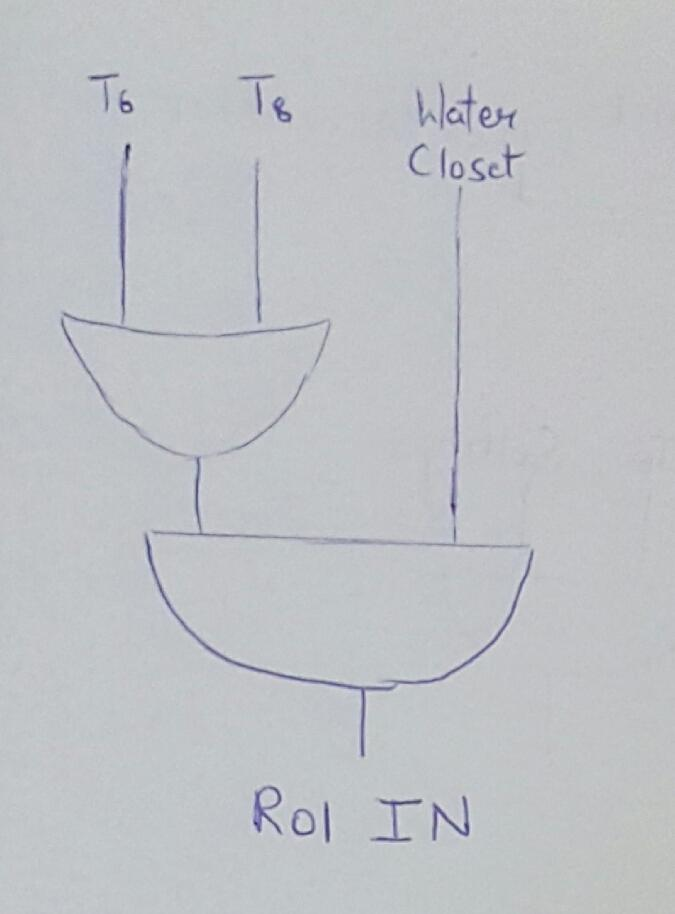 T6 T8 Water
Closet
R01 IN